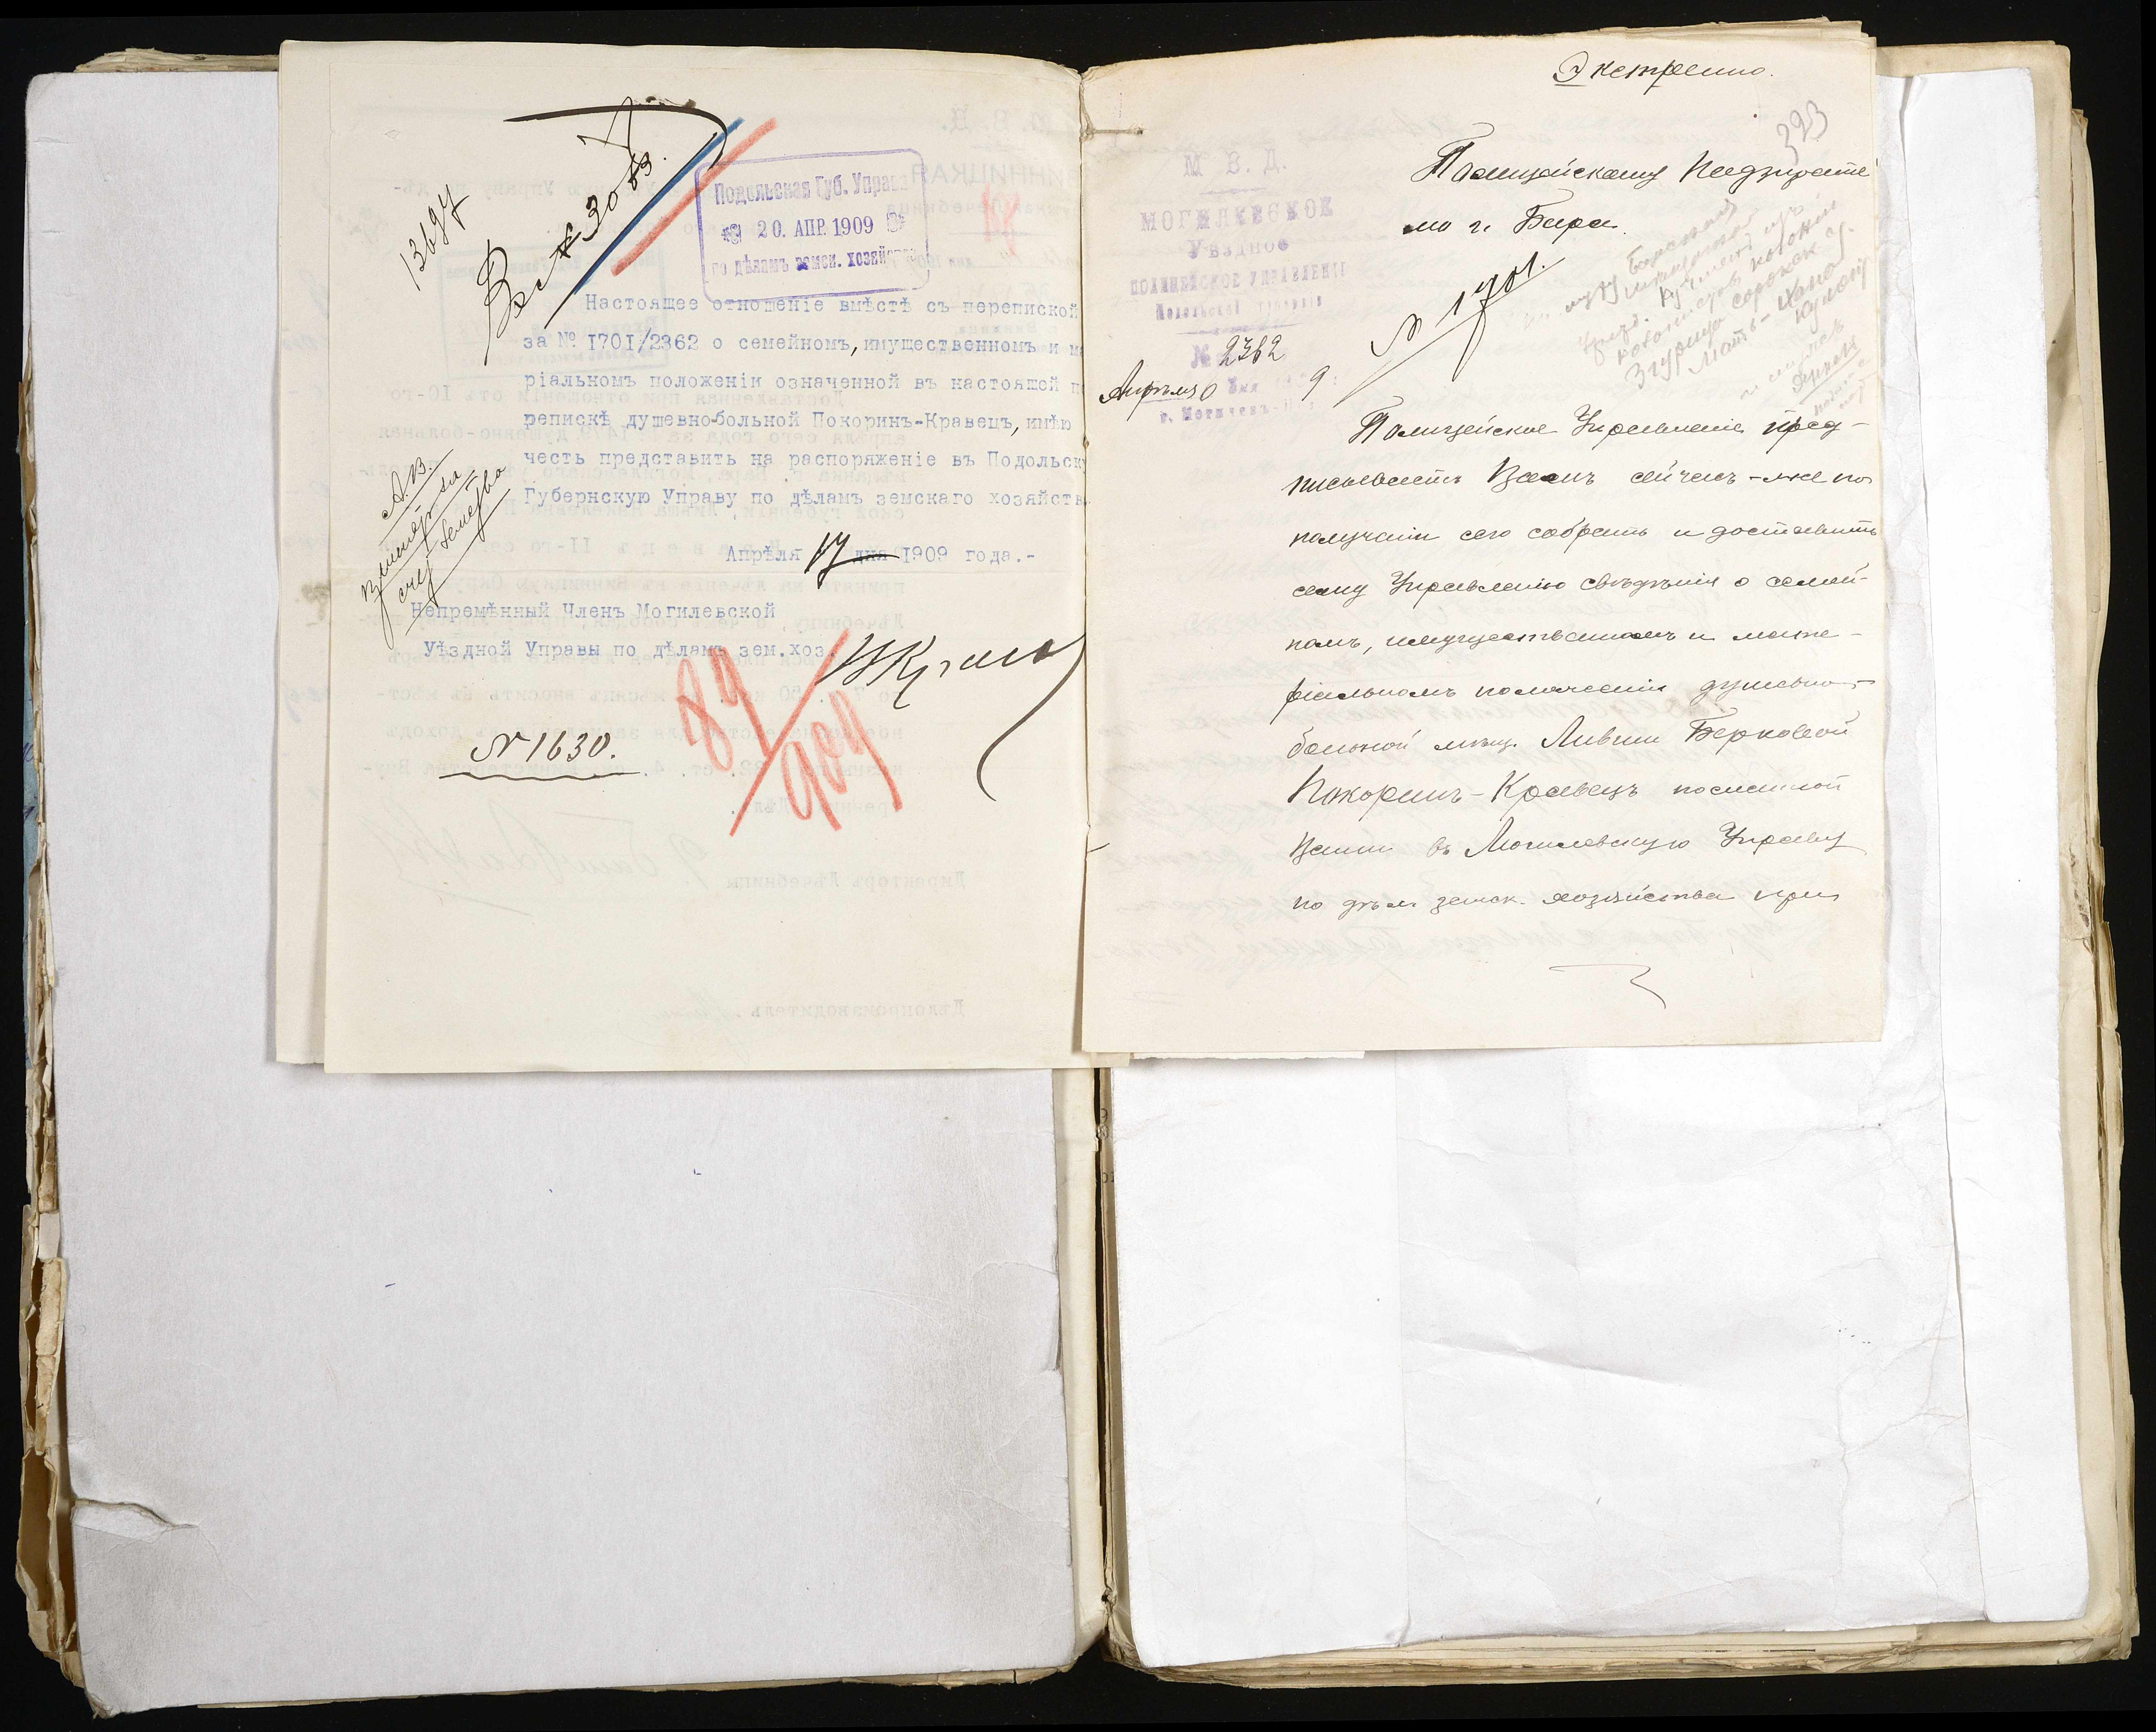 13697
Вст. 3083.
Подольская Губ. Управа
20. АПР. 1909
по дѣламъ земск. хозяйства
Настоящее отношеніе вмѣстѣ съ перепиской
за № 1701/2362 о семейномъ, имущественномъ и ма
ріальномъ положеніи означенной въ настоящей п
репискѣ душевно-больной Покоринъ-Кравецъ, имѣю
честь представить на распоряженіе въ Подольск
Губернскую Управу по дѣламъ земскаго хозяйств
Апрѣля 17 дня 1909 года.-
Непремѣнный Членъ Могилевской
Уѣздной Управы по дѣламъ зем.хоз.
№ 1630.
89/904
Экстренно.
323
Полицейскому Надзирате
лю г. Бара.
М В. Д.
МОГИЛЕВСКОЕ
УѢЗДНОЕ
ПОЛИЦЕЙСКОЕ УПРАВЛЕНІЕ
Подольской губерніи
№ 2362
Апрѣля 9
г. Могилевъ
№ 1701.
Полицейское Управленіе пред-
писываетъ Вамъ сейчасъ-же по
полученіи сего собрать и доставить
сему Управленію свѣдѣнія о семей-
номъ, имущественномъ и мате-
ріальномъ положеніи душевно-
больной мѣщ. Ливши Берковой
Покоринъ-Кравецъ посланной
Вами въ Могилевскую Управу
по дѣлъ земск. хозяйства при